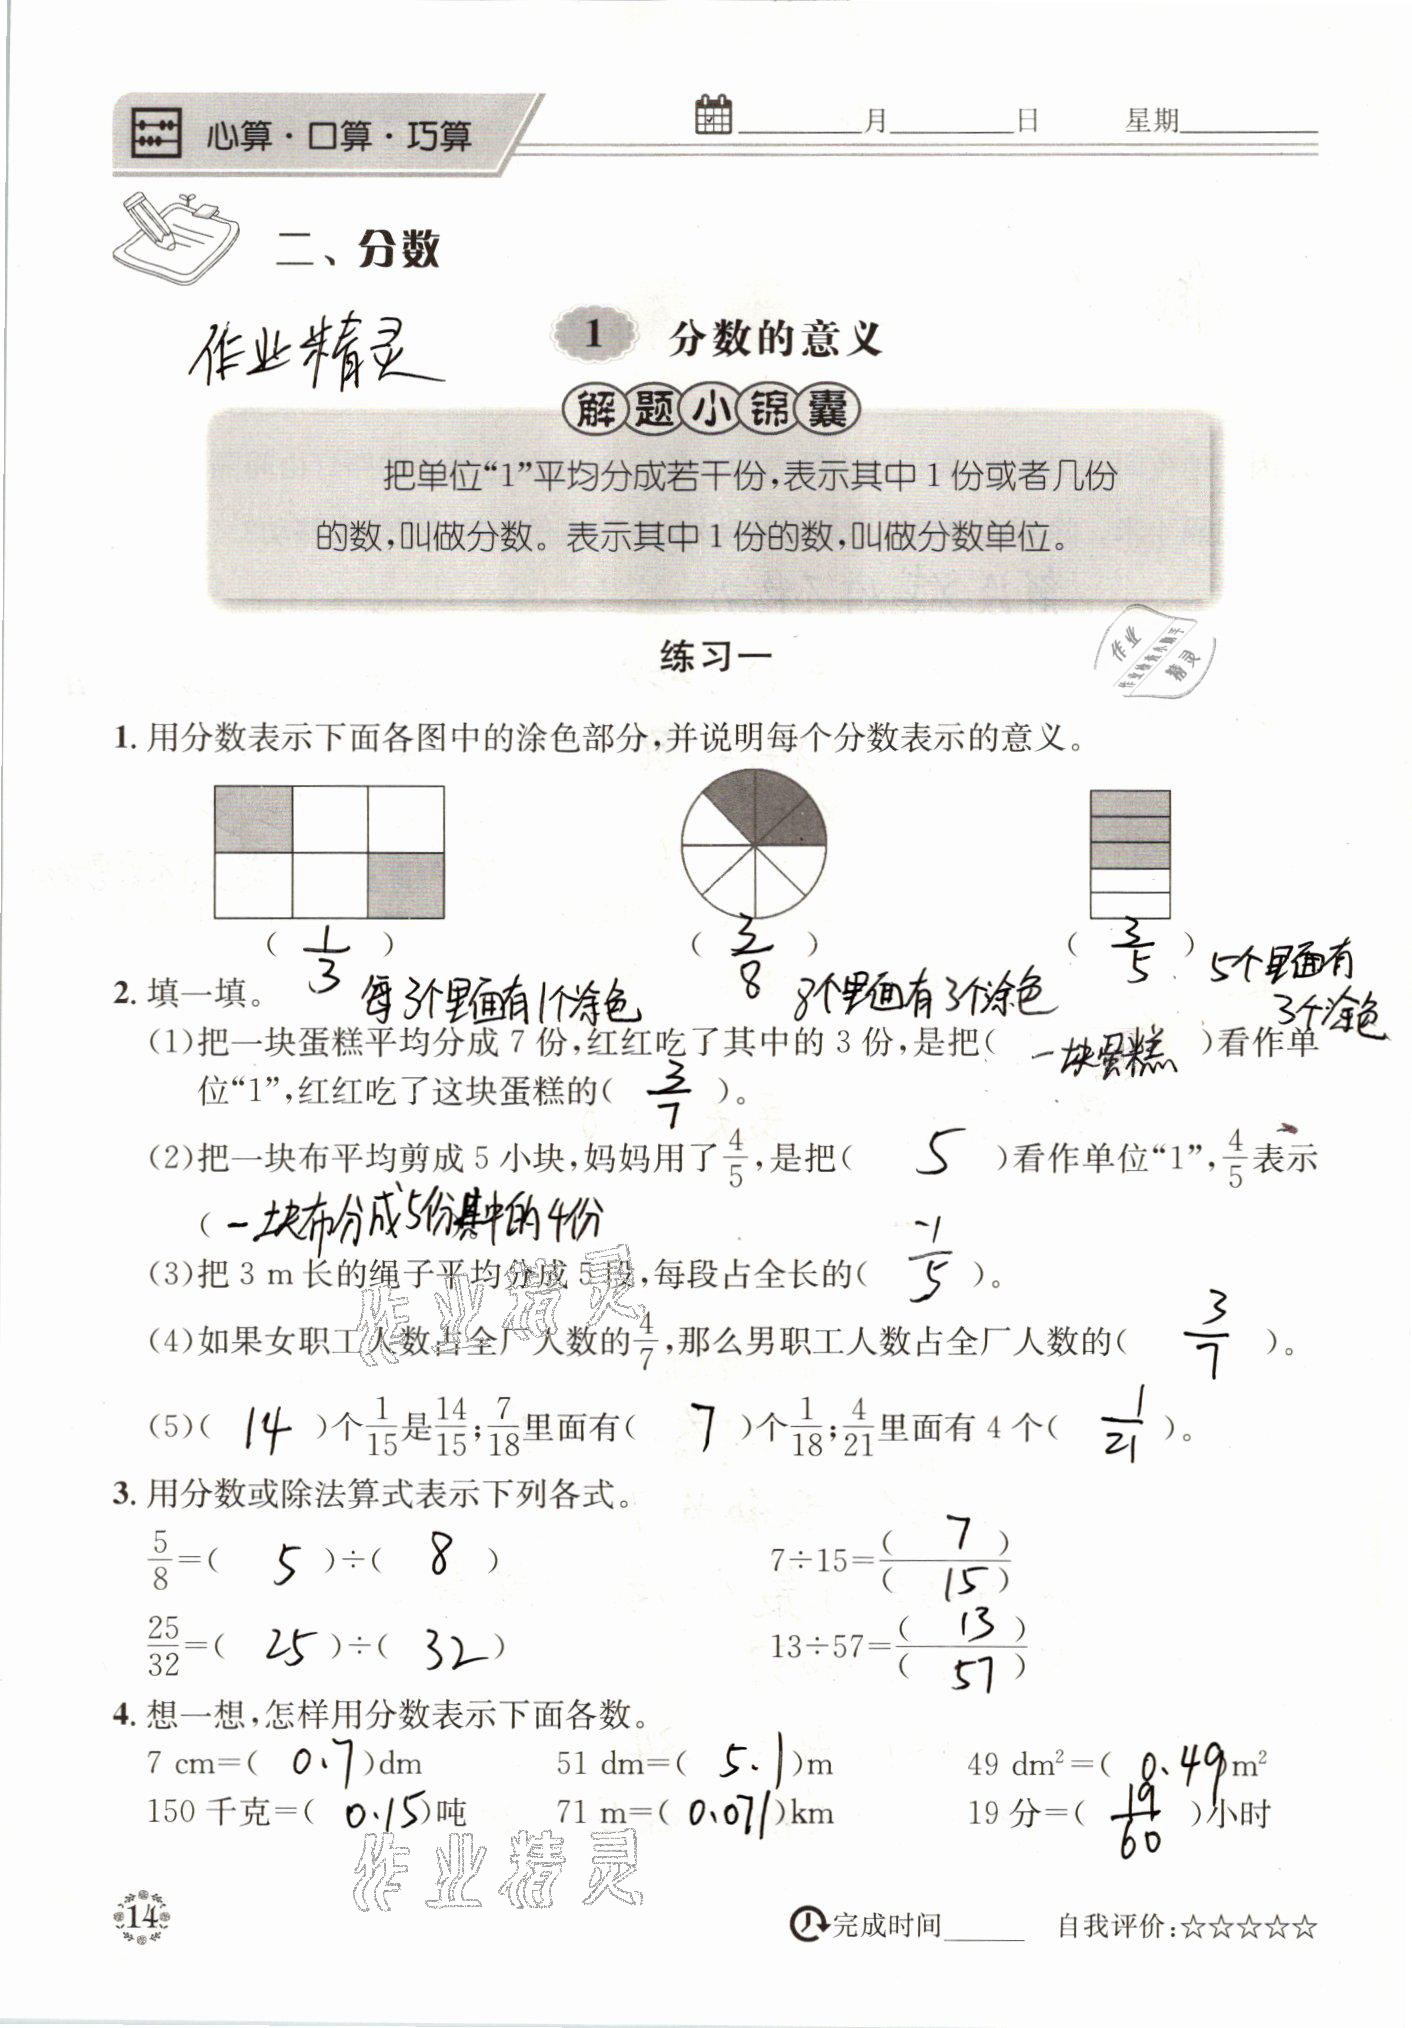 心算·口算·巧算
____月____日 星期____
二、分数
作业精灵
1 分数的意义
解题小锦囊
把单位“1”平均分成若干份,表示其中1份或者几份
的数,叫做分数。表示其中1份的数,叫做分数单位。
练习一
作业
作业检查小助手
精灵
1. 用分数表示下面各图中的涂色部分,并说明每个分数表示的意义。
( 1/3 ) ( 3/8 ) ( 3/5 )
每3个里面有1个涂色 8个里面有3个涂色 5个里面有
3个涂色
2. 填一填。
(1)把一块蛋糕平均分成7份,红红吃了其中的3份,是把( 一块蛋糕 )看作单
位“1”,红红吃了这块蛋糕的( 3/7 )。
(2)把一块布平均剪成5小块,妈妈用了4/5,是把( 5 )看作单位“1”,4/5表示
( 一块布分成5份其中的4份
(3)把3 m长的绳子平均分成5段,每段占全长的( 1/5 )。
(4)如果女职工人数占全厂人数的4/7,那么男职工人数占全厂人数的( 3/7 )。
(5)( 14 )个1/15是14/15;7/18里面有( 7 )个1/18;4/21里面有4个( 1/21 )。
3. 用分数或除法算式表示下列各式。
5/8=( 5 )÷( 8 ) 7÷15=( 7 )/( 15 )
25/32=( 25 )÷( 32 ) 13÷57=( 13 )/( 57 )
4. 想一想,怎样用分数表示下面各数。
7 cm=( 0.7 )dm 51 dm=( 5.1 )m 49 dm²=( 0.49 )m²
150千克=( 0.15 )吨 71 m=( 0.071 )km 19分=( 19/60 )小时
作业精灵
作业精灵
14
完成时间____ 自我评价:☆☆☆☆☆